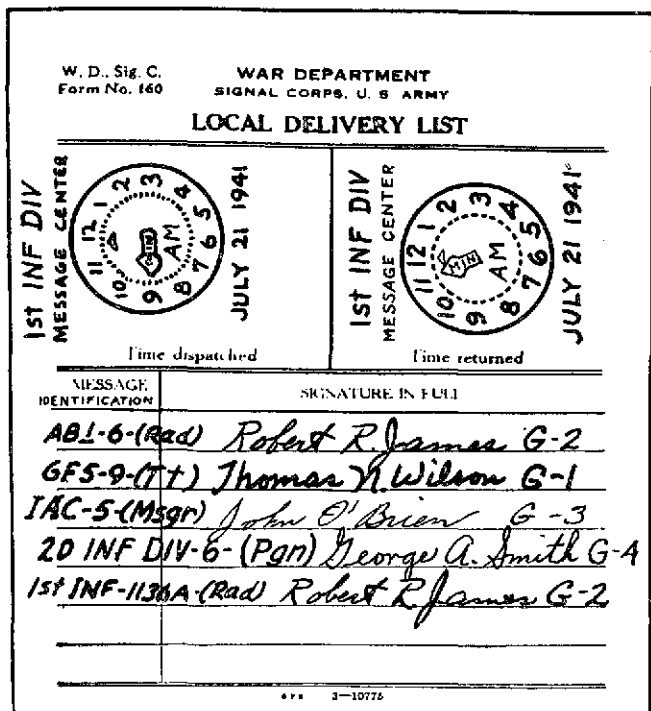 W. D., Sig. C.
Form No. 160
WAR DEPARTMENT
SIGNAL CORPS, U. S ARMY
LOCAL DELIVERY LIST
1st INF DIV
MESSAGE CENTER
12 1 2 3 4 5 6 7 8 9 10 11
MIN
AM
JULY 21 1941
Time dispatched
1st INF DIV
MESSAGE CENTER
12 1 2 3 4 5 6 7 8 9 10 11
MIN
AM
JULY 21 1941
Time returned
MESSAGE
IDENTIFICATION
SIGNATURE IN FULL
AB1-6-(Rad) Robert R. James G-2
GF5-9-(Tt) Thomas N. Wilson G-1
IAC-5-(Msgr) John O'Brien G-3
2D INF DIV-6-(Pgn) George A. Smith G-4
1st INF-1136A-(Rad) Robert R. James G-2
3—10775